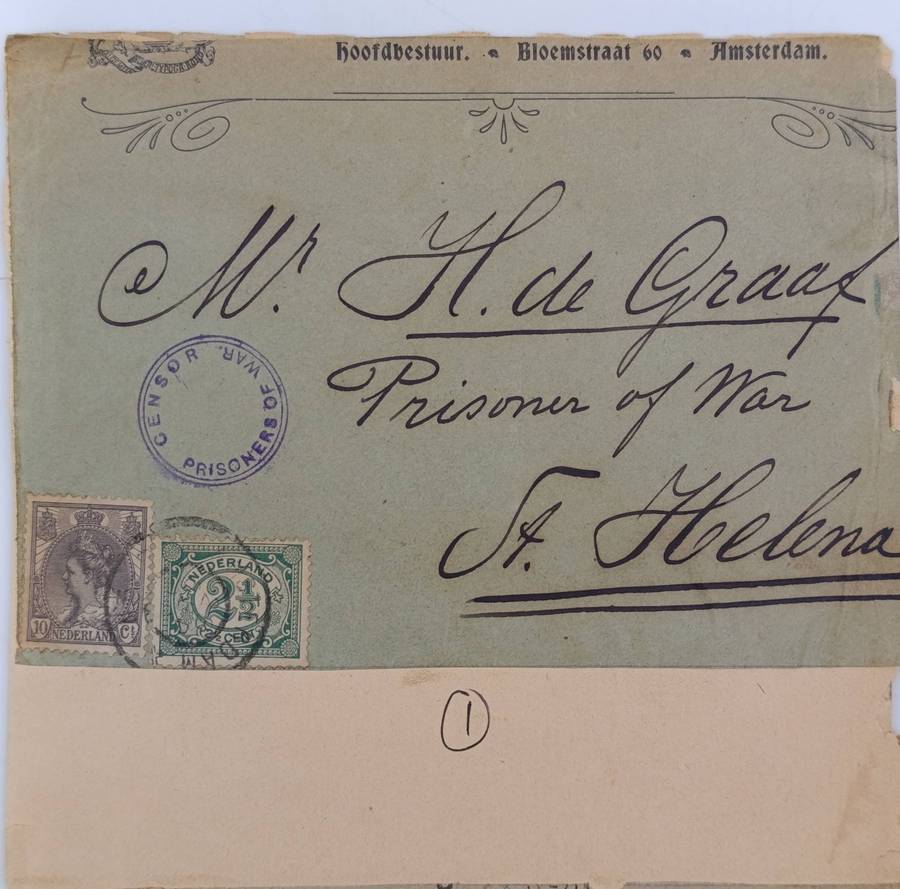 Hoofdbestuur. Bloemstraat 60 Amsterdam.
Mr. H. de Graaf
CENSOR PRISONERS OF WAR.
Prisoner of War
St. Helena
10 NEDERLAND Ct
NEDERLAND
2½
CENT
DAM
1